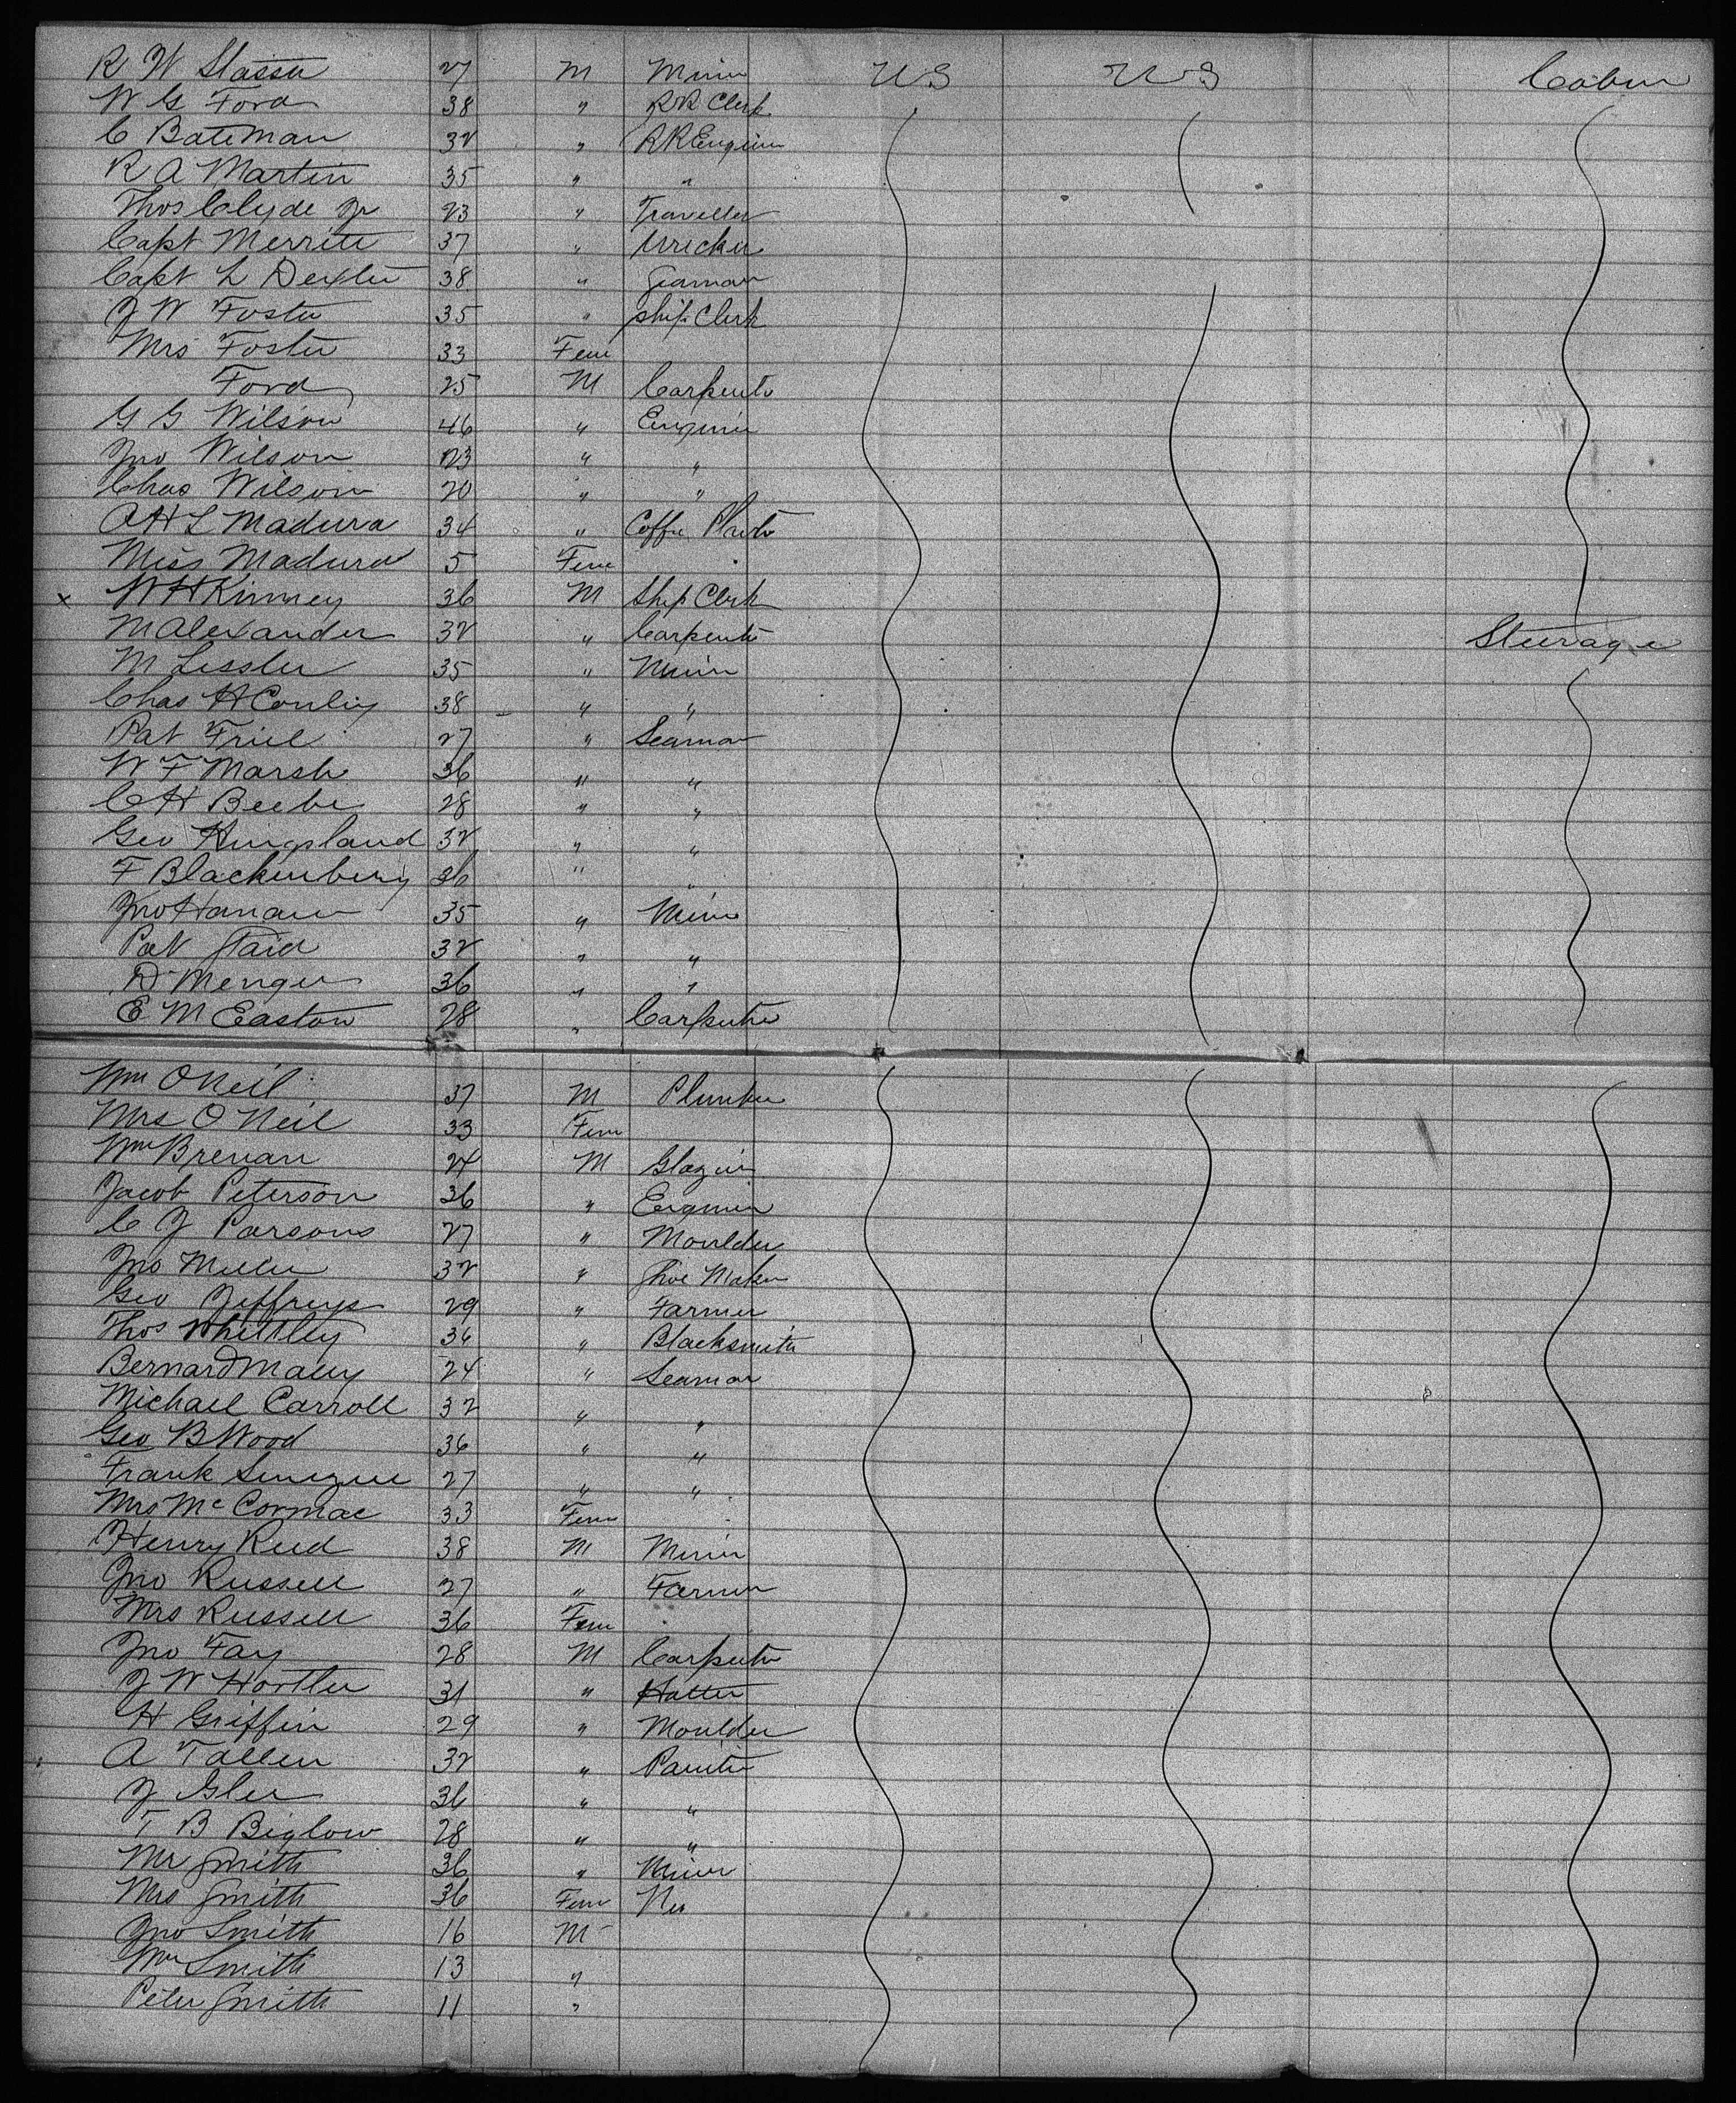 R W 27 M Miner US US Cabin
W G Ford 38 " RR Clerk
C Bateman 32 " RR Engineer
R A Martin 35 " "
Thos Clyde Jr 23 " Traveller
Capt Merritt 37 " Wrecker
Capt L Dexter 38 " Seaman
J W Foster 35 " Ship Clerk
Mrs Foster 33 Fem
Ford 25 M Carpenter
G G Wilson 46 " Engineer
Jno Wilson 23 " "
Chas Wilson 20 " "
A H L Madura 34 " Coffee Planter
Miss Madura 5 Fem
x W H Kinney 36 M Ship Clerk
M Alexander 32 " Carpenter Steerage
M Lessler 35 " Miner
Chas H Conling 38 " "
Pat Friel 27 " Seaman
W F Marsh 36 " "
C H Beebe 28 " "
Geo Kingsland 32 " "
F Blackenberg 36 " "
Jno Hanaw 35 " Miner
Pat Staid 32 " "
D Menger 36 " "
E M Easton 28 " Carpenter
Wm O Neil 37 M
Mrs O Neil 33 Fem
Wm Brenan 24 M Glazier
Jacob Peterson 36 " Engineer
C J Parsons 27 " Moulder
Jno Miller 32 " Shoe Maker
Geo Jeffreys 29 " Farmer
Thos Whittley 36 " Blacksmith
Bernard Maley 24 " Seaman
Michael Carroll 32 " "
Geo B Wood 36 " "
Frank 27 " "
Mrs Mc Cormac 33 Fem
Henry Reed 38 M Miner
Jno Russell 27 " Farmer
Mrs Russell 36 Fem
Jno Fay 28 M Carpenter
J W Hortler 31 " Hatter
H Griffin 29 " Moulder
A Tallen 32 " Painter
J Gler 36 " "
T B Biglow 28 " "
Mr Smith 36 " Miner
Mrs Smith 36 Fem
Jno Smith 16 M
Wm Smith 13 "
Peter Smith 11 "